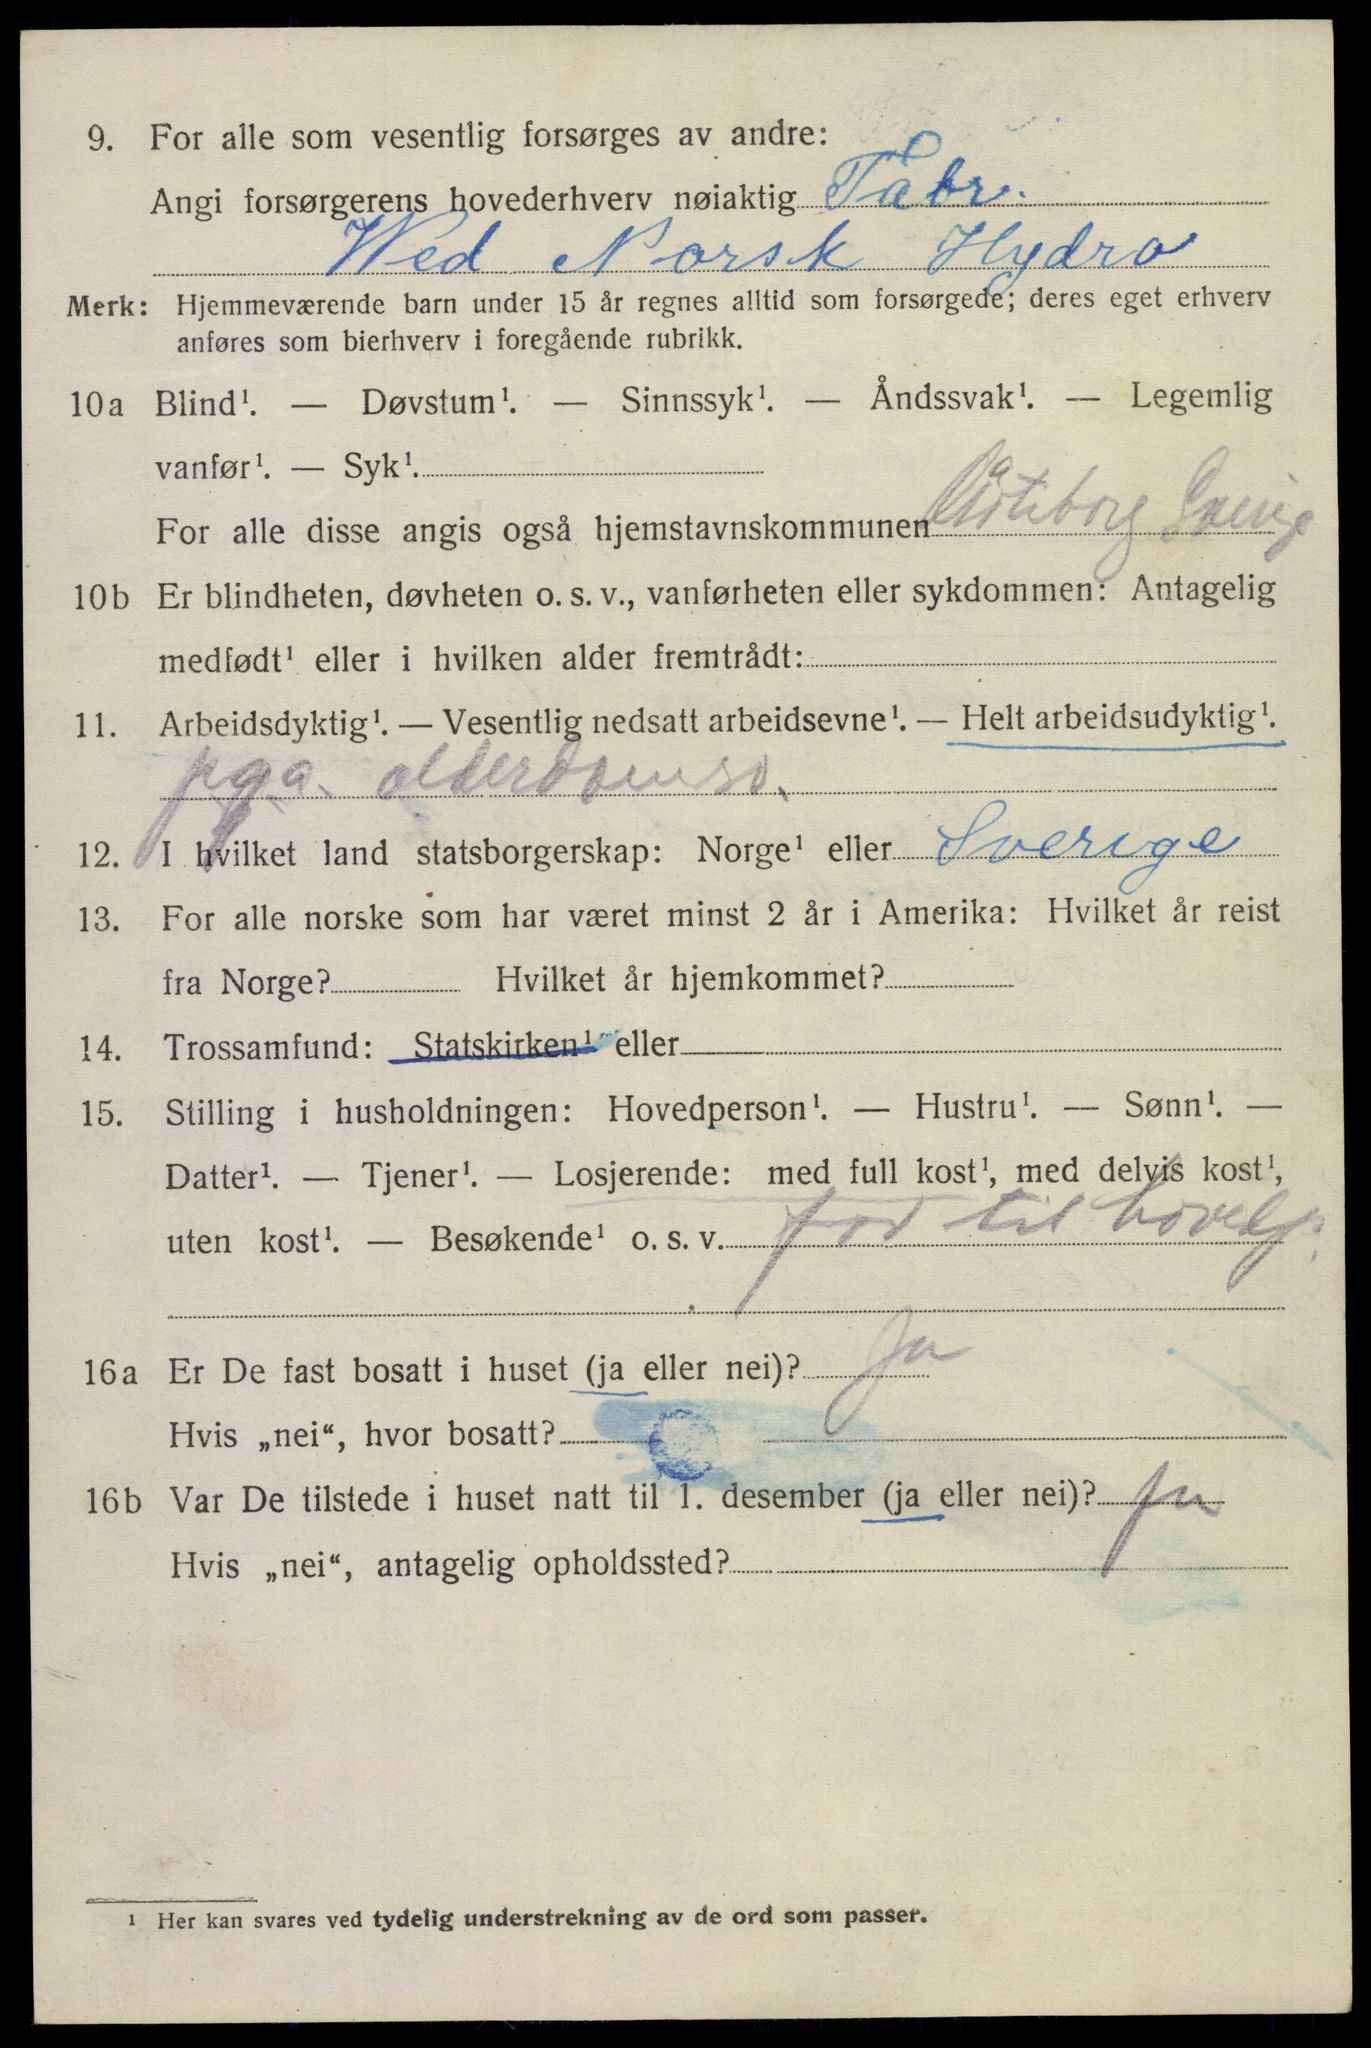 9. For alle som vesentlig forsørges av andre:
Angi forsørgerens hovederhverv nøiaktig Fabr.
Wed Norsk Hydro
Merk: Hjemmeværende barn under 15 år regnes alltid som forsørgede; deres eget erhverv
anføres som bierhverv i foregående rubrikk.
10a Blind¹. — Døvstum¹. — Sinnssyk¹. — Åndssvak¹. — Legemlig
vanfør¹. — Syk¹.
For alle disse angis også hjemstavnskommunen
10b Er blindheten, døvheten o. s. v., vanførheten eller sykdommen: Antagelig
medfødt¹ eller i hvilken alder fremtrådt:
11. Arbeidsdyktig¹. — Vesentlig nedsatt arbeidsevne¹. — Helt arbeidsudyktig¹.
pga.
12. I hvilket land statsborgerskap: Norge¹ eller Sverige
13. For alle norske som har været minst 2 år i Amerika: Hvilket år reist
fra Norge? Hvilket år hjemkommet?
14. Trossamfund: Statskirken¹ eller
15. Stilling i husholdningen: Hovedperson¹. — Hustru¹. — Sønn¹. —
Datter¹. — Tjener¹. — Losjerende: med full kost¹, med delvis kost¹,
uten kost¹. — Besøkende¹ o. s. v. til
16a Er De fast bosatt i huset (ja eller nei)? Ja
Hvis „nei“, hvor bosatt?
16b Var De tilstede i huset natt til 1. desember (ja eller nei)? ja
Hvis „nei“, antagelig opholdssted?
¹ Her kan svares ved tydelig understrekning av de ord som passer.